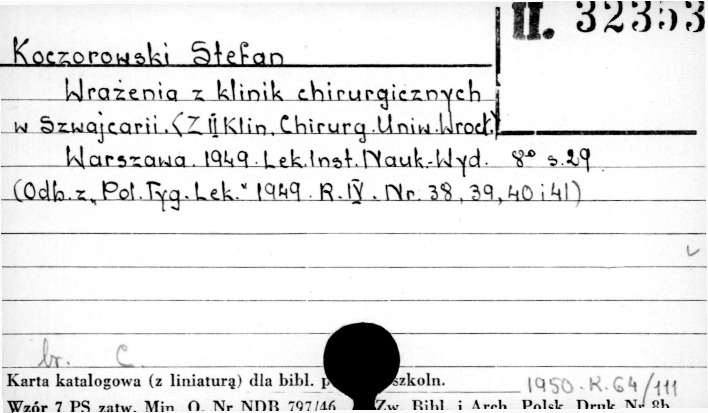 II. 32353
Koczorowski Stefan
Wrażenia z klinik chirurgicznych
w Szwajcarii. (Z II Klin. Chirurg. Uniw. Wrocł.)
Warszawa. 1949. Lek. Inst. Nauk.-Wyd. 8° s. 29
(Odb. z „Pol. Tyg. Lek." 1949. R. IV. Nr. 38, 39, 40 i 41)
br. C.
Karta katalogowa (z liniaturą) dla bibl. p szkoln.
1950. R. 64/111
Wzór 7 PS zatw. Min. O. Nr NDB 797/46 Zw. Bibl. i Arch. Polsk. Druk Nr 8b